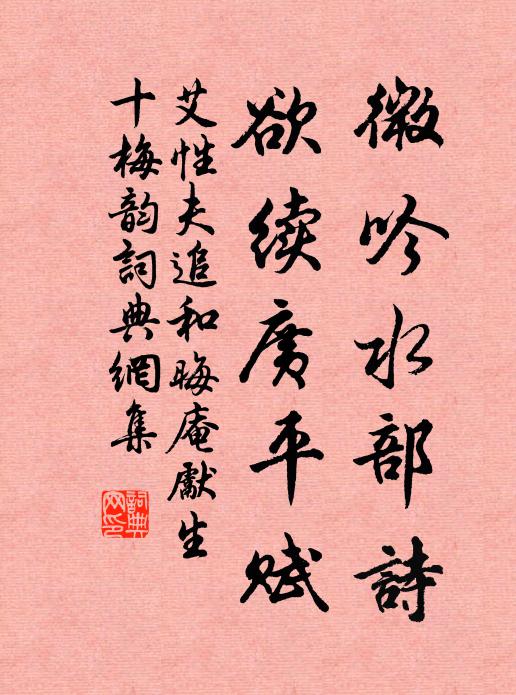 微吟水部詩
欲续廣平赋
艾性夫追和晦庵獻生
十梅韵詞典網集
詞典
网印